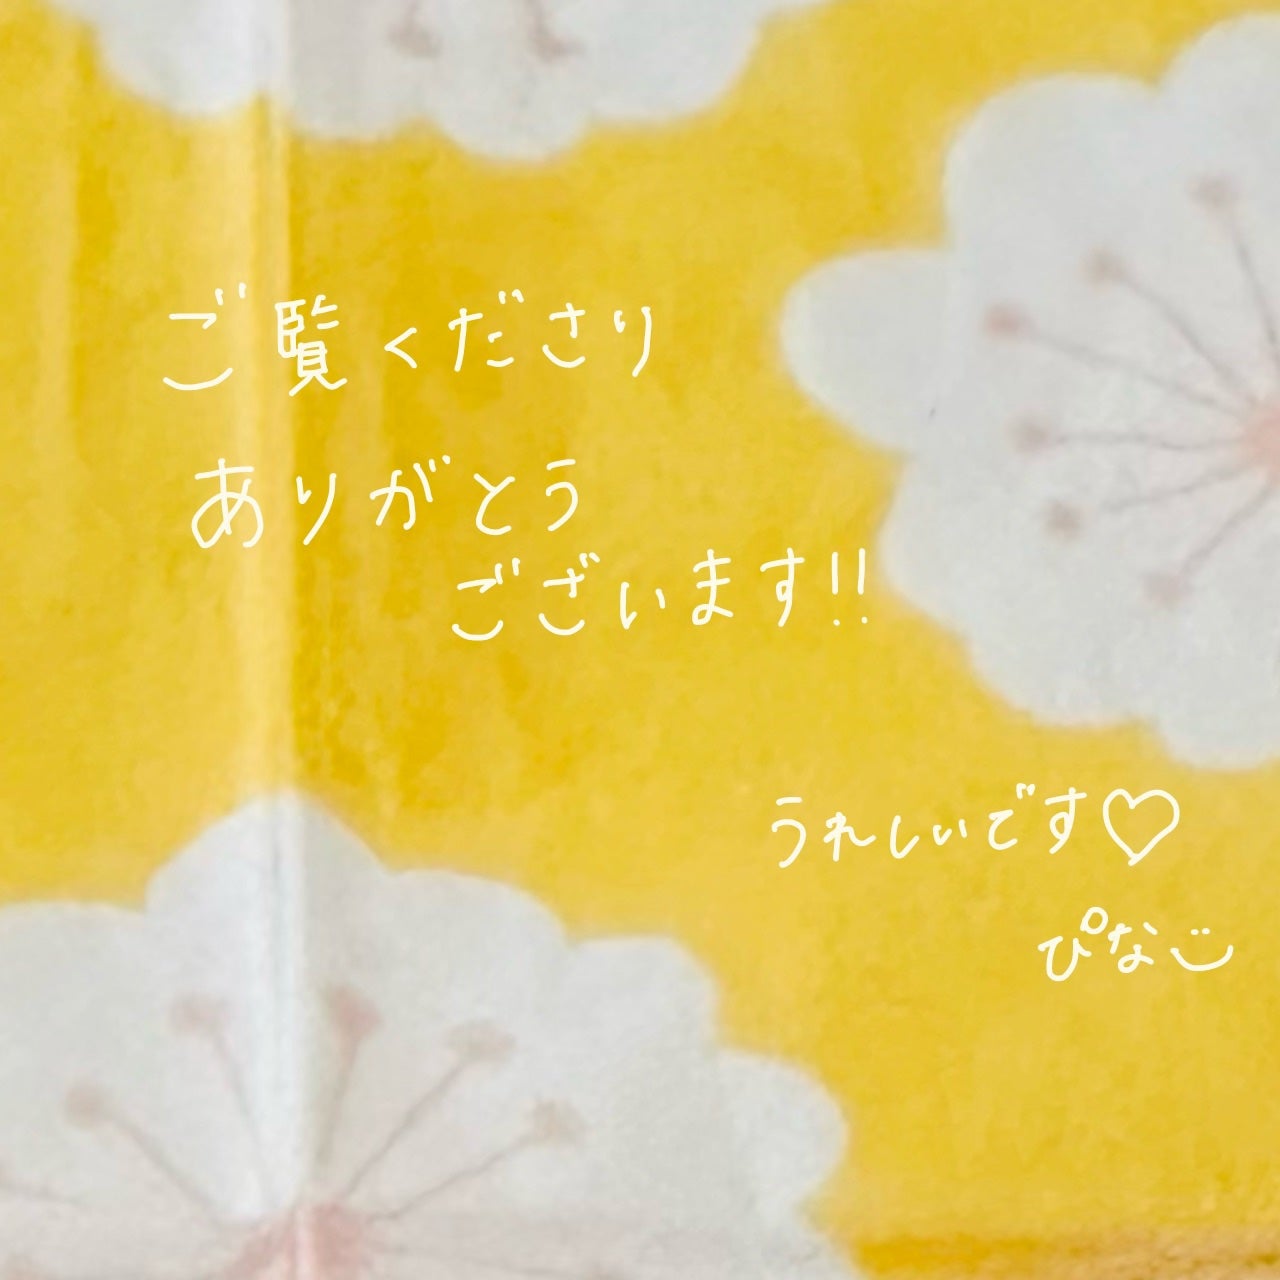 ご覧くださり
ありがとう
ございます!!
うれしいです♡
ぴな